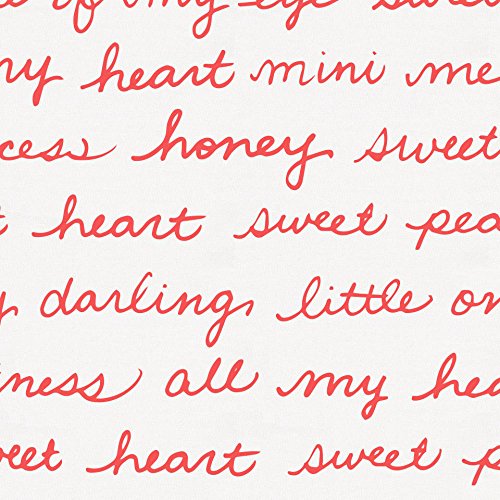 of my eye sweet
my heart mini me
cess honey sweet
t heart sweet pea
y darling, little on
iness all my hea
weet heart sweet p